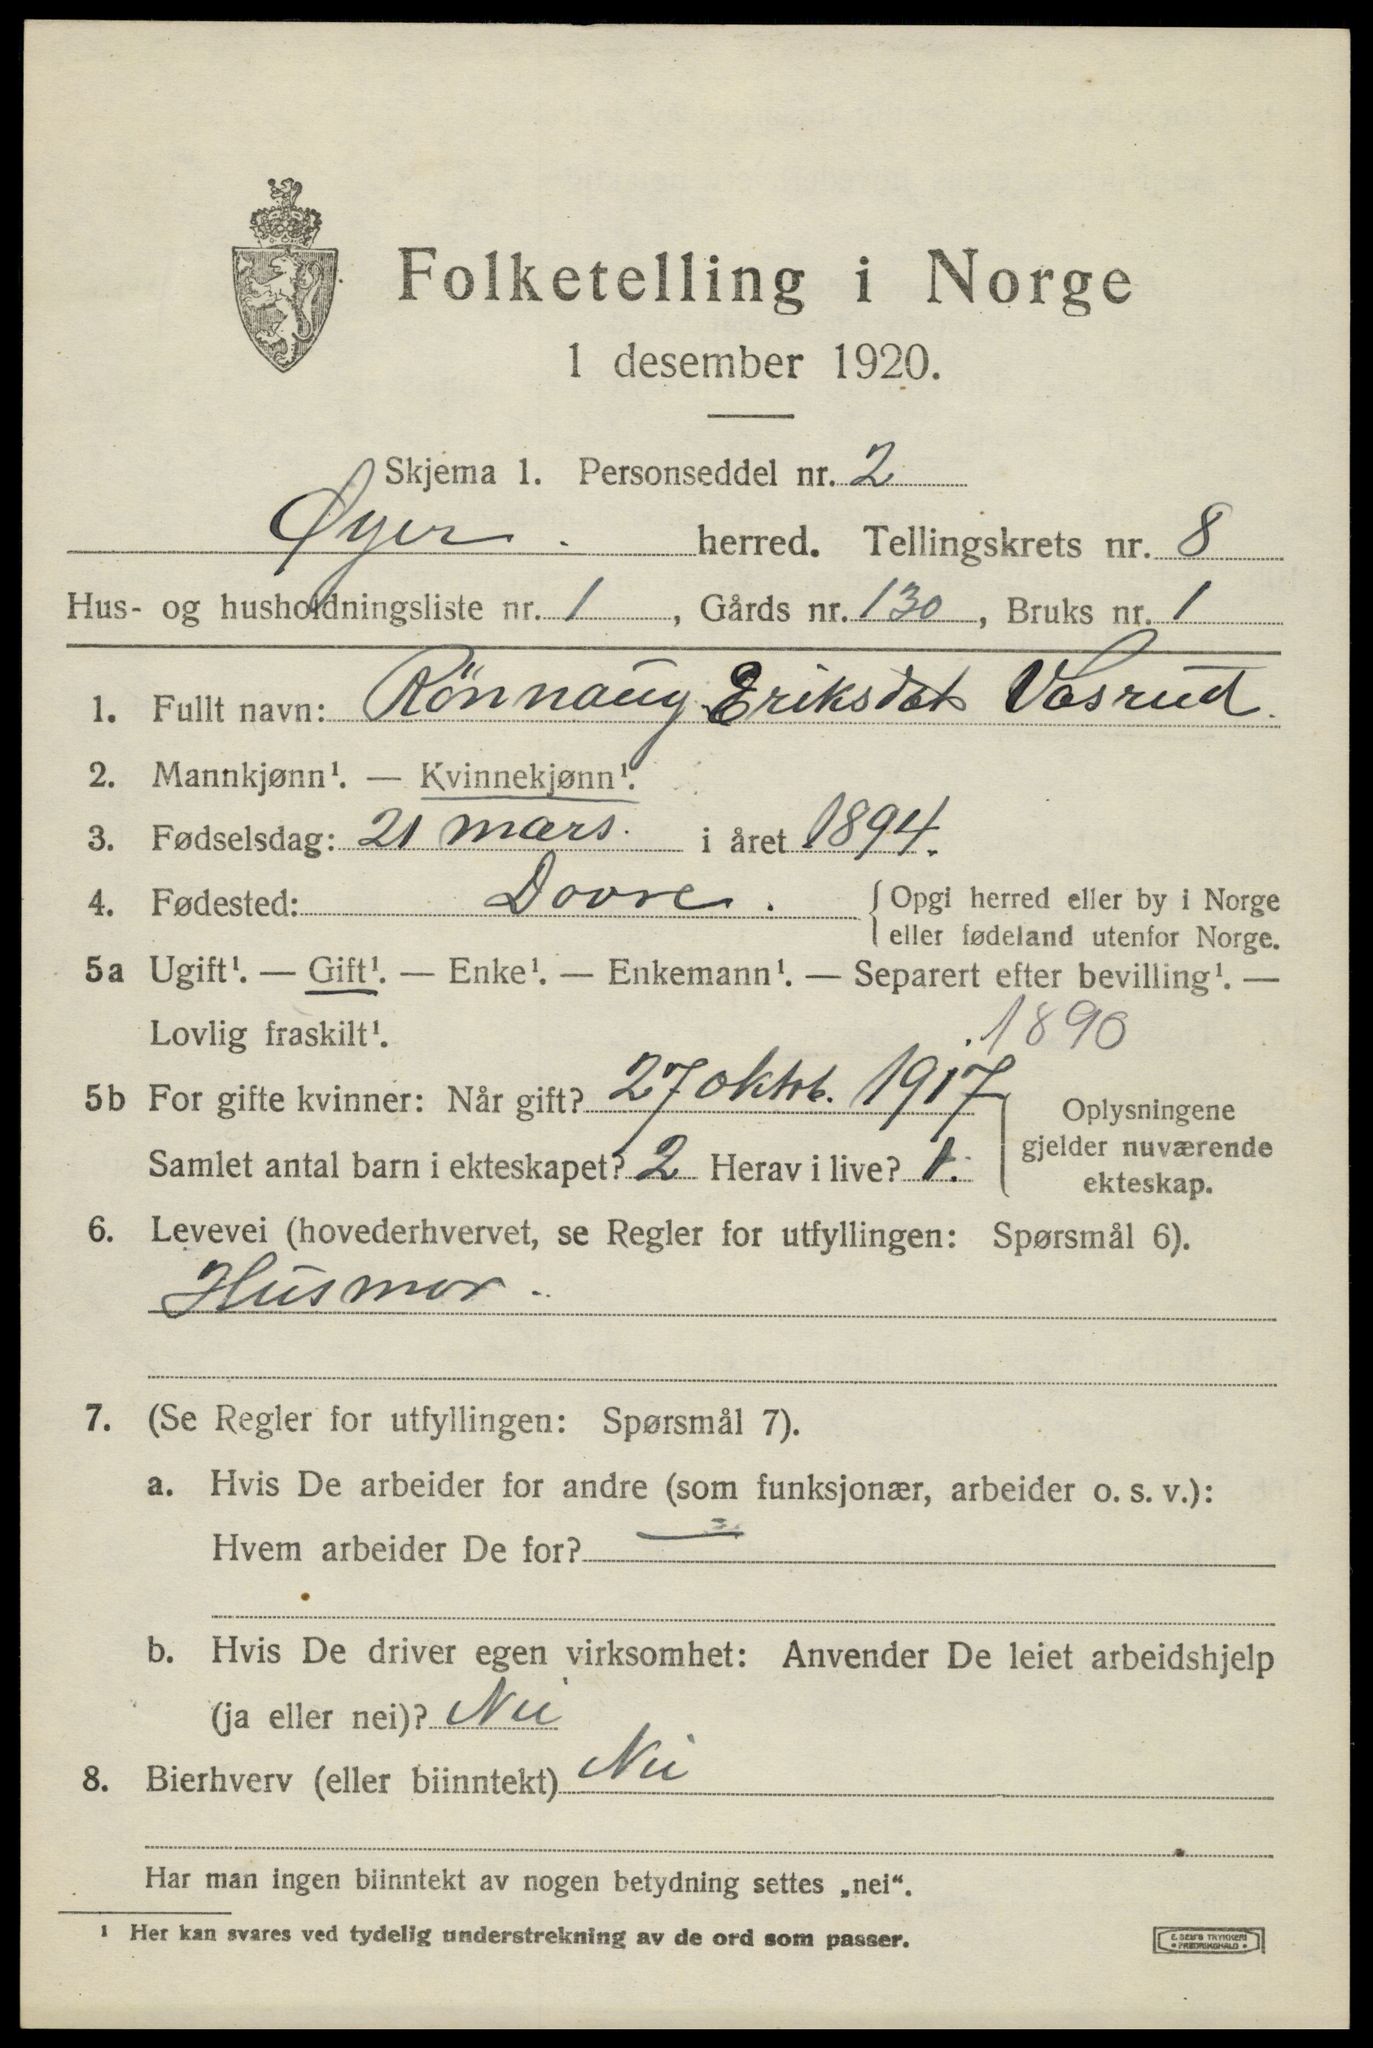 Folketelling i Norge
1 desember 1920.
Skjema 1. Personseddel nr. 2
Øyer. herred. Tellingskrets nr. 8
Hus- og husholdningsliste nr. 1, Gårds nr. 130, Bruks nr. 1
1. Fullt navn: Rönnaug Eriksdat Vasrud.
2. Mannkjønn¹. — Kvinnekjønn¹.
3. Fødselsdag: 21 mars. i året 1894.
4. Fødested: Dovre. { Opgi herred eller by i Norge
eller fødeland utenfor Norge.
5a Ugift¹. — Gift¹. — Enke¹. — Enkemann¹. — Separert efter bevilling¹. —
Lovlig fraskilt¹. 1890
5b For gifte kvinner: Når gift? 27 oktob. 1917
Samlet antal barn i ekteskapet? 2 Herav i live? 1.
Oplysningene
gjelder nuværende
ekteskap.
6. Levevei (hovederhvervet, se Regler for utfyllingen: Spørsmål 6).
Husmor.
7. (Se Regler for utfyllingen: Spørsmål 7).
a. Hvis De arbeider for andre (som funksjonær, arbeider o. s. v.):
Hvem arbeider De for? —
b. Hvis De driver egen virksomhet: Anvender De leiet arbeidshjelp
(ja eller nei)? Nei
8. Bierhverv (eller biinntekt) Nei
Har man ingen biinntekt av nogen betydning settes „nei“.
¹ Her kan svares ved tydelig understrekning av de ord som passer.
E. SEM'S TRYKKERI
FREDRIKSHALD